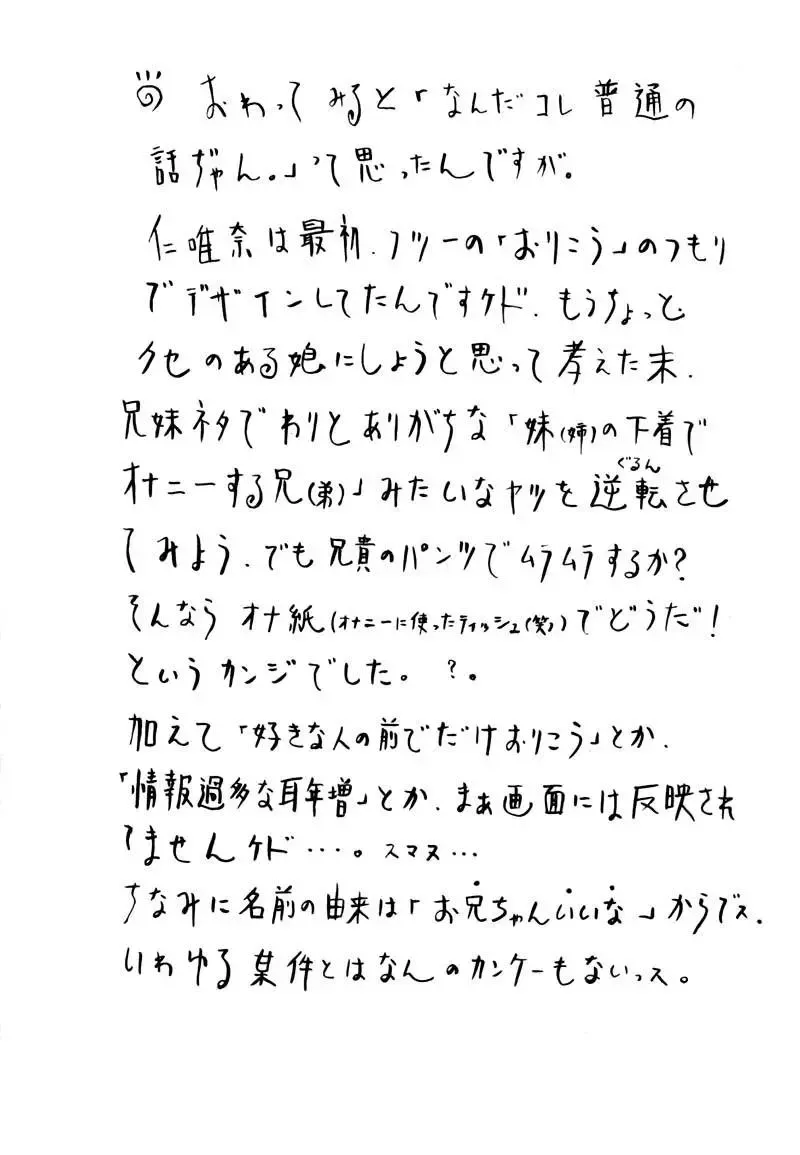 おわってみると「なんだコレ普通の
話ぢゃん。」って思ったんですが。
仁唯奈は最初、フツーの「おりこう」のつもり
でデザインしてたんですケド、もうちょっと
クセのある娘にしようと思って考えた末、
兄妹ネタでわりとありがちな「妹(姉)の下着で
オナニーする兄(弟)」みたいなヤツを逆転させ
ぐるん
てみよう、でも兄貴のパンツでムラムラするか?
そんなら オナ紙(オナニーに使ったティッシュ(笑))でどうだ!
というカンジでした。?。
加えて「好きな人の前でだけおりこう」とか、
「情報過多な耳年増」とか、まぁ画面には反映され
てませんケド…。スマヌ…
ちなみに名前の由来は「お兄ちゃんいいな」からでス。
いわゆる某件とはなんのカンケーもないっス。